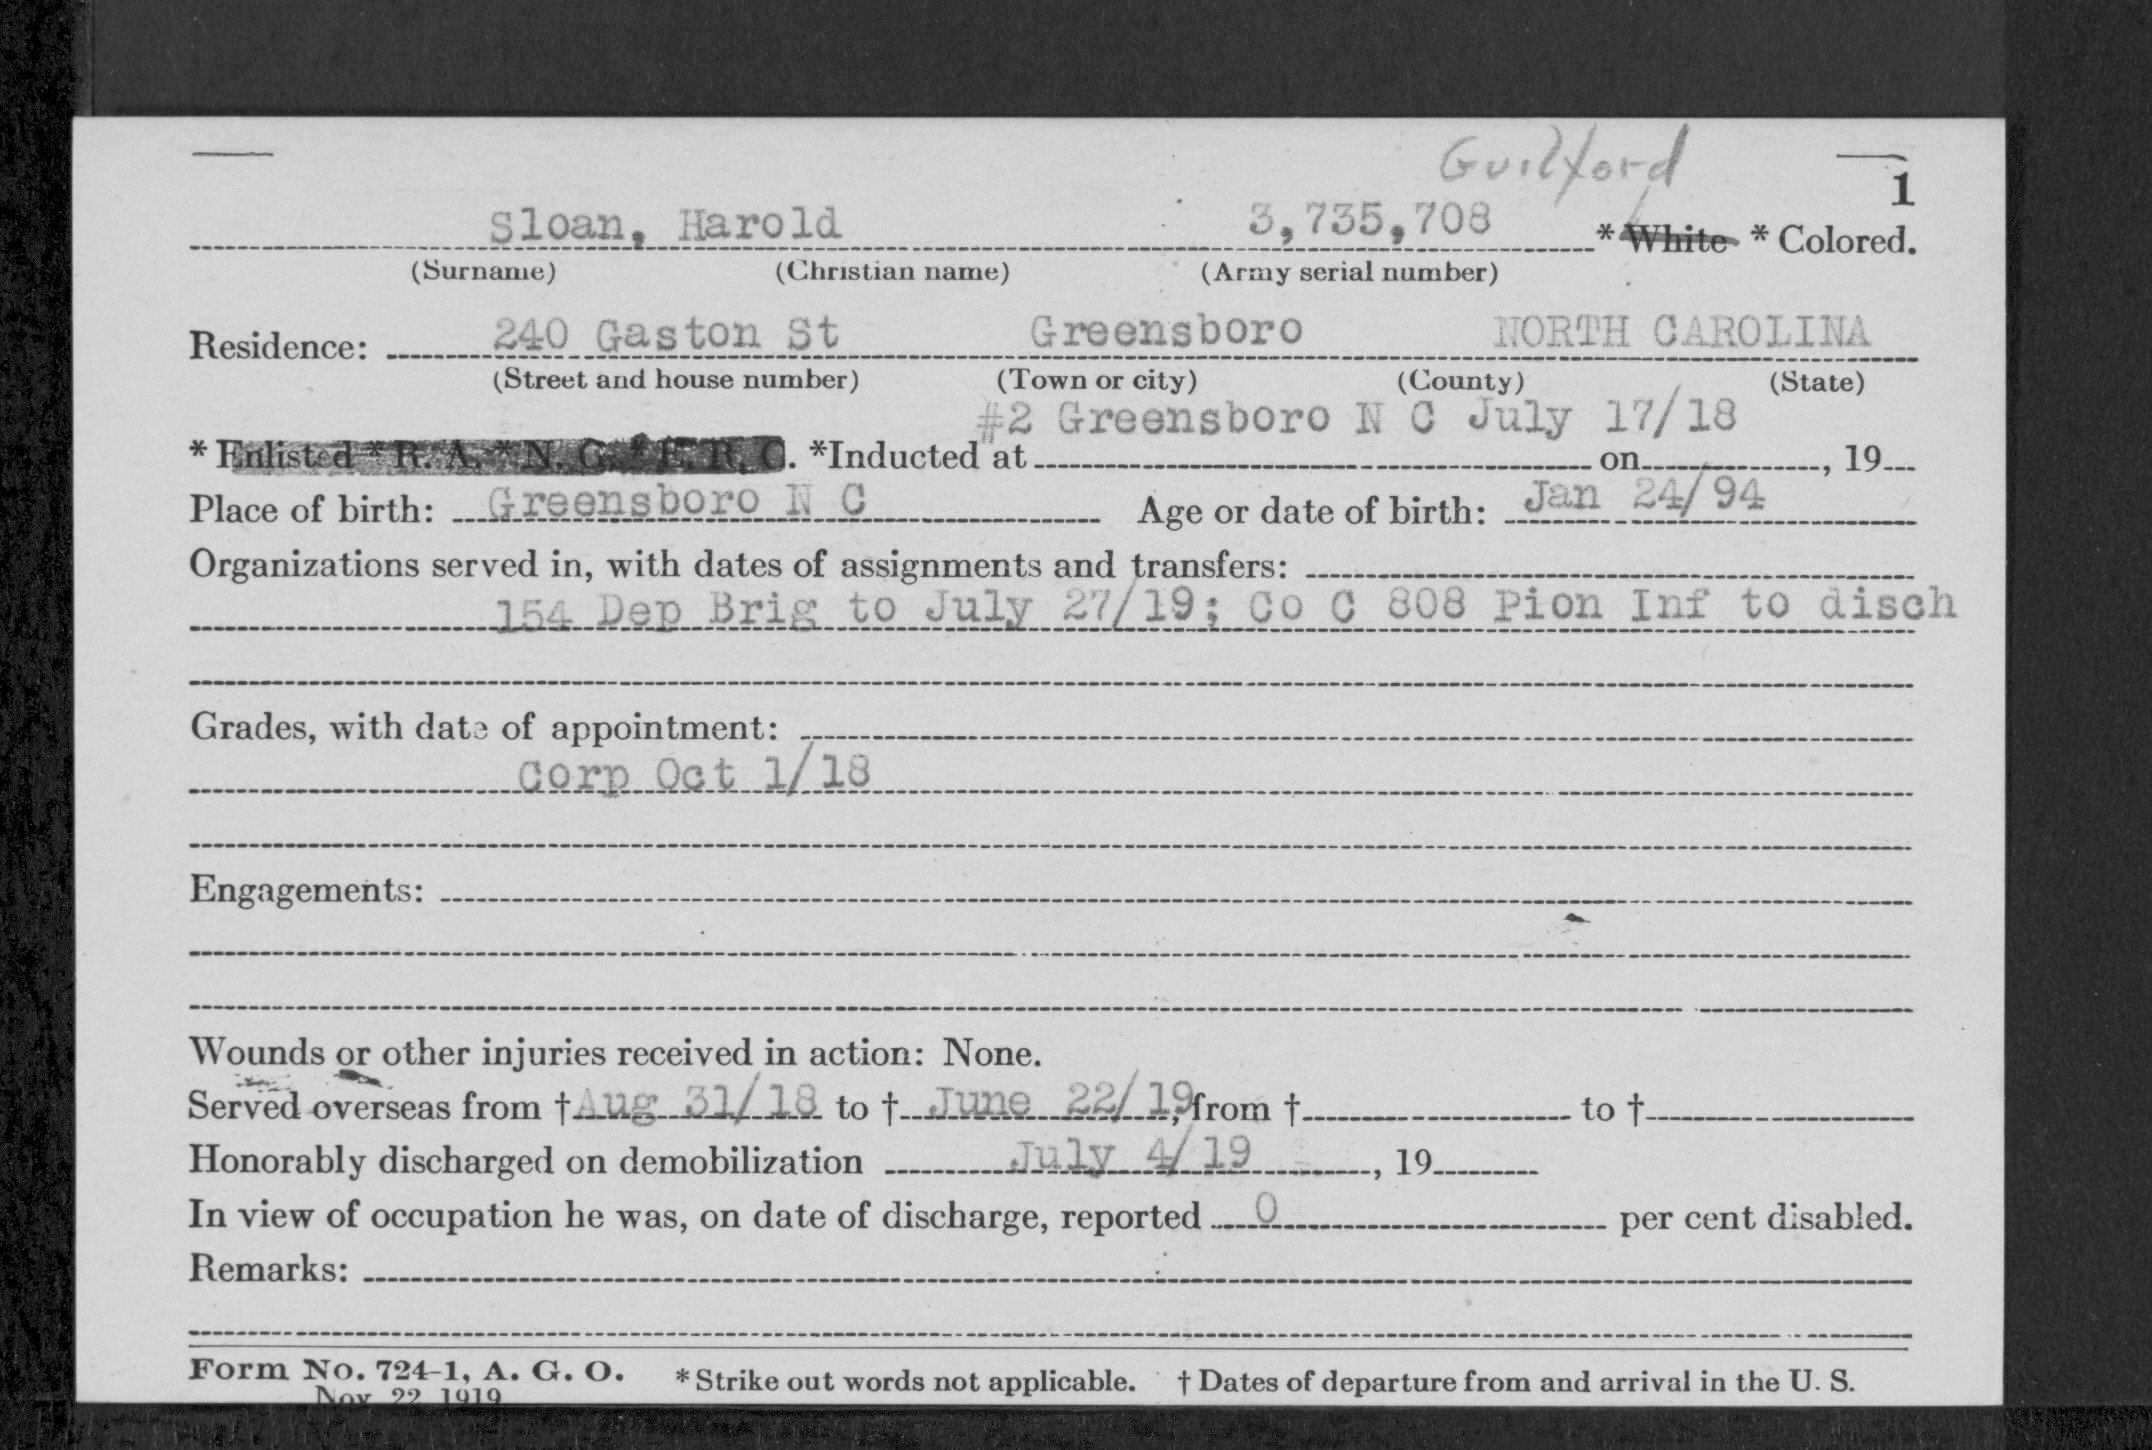 Guilford
1
Sloan, Harold 3,735,708 * White * Colored.
(Surname) (Christian name) (Army serial number)
Residence: 240 Gaston St Greensboro NORTH CAROLINA
(Street and house number) (Town or city) (County) (State)
#2 Greensboro N C July 17/18
* Enlisted * R. A. * N. G. * E. R. C. *Inducted at on , 19
Place of birth: Greensboro N C Age or date of birth: Jan 24/94
Organizations served in, with dates of assignments and transfers:
154 Dep Brig to July 27/19; Co C 808 Pion Inf to disch
Grades, with date of appointment:
Corp Oct 1/18
Engagements:
Wounds or other injuries received in action: None.
Served overseas from † Aug 31/18 to † June 22/19, from † to †
Honorably discharged on demobilization July 4/19 , 19
In view of occupation he was, on date of discharge, reported 0 per cent disabled.
Remarks:
Form No. 724-1, A. G. O. * Strike out words not applicable. † Dates of departure from and arrival in the U. S.
Nov. 22, 1919